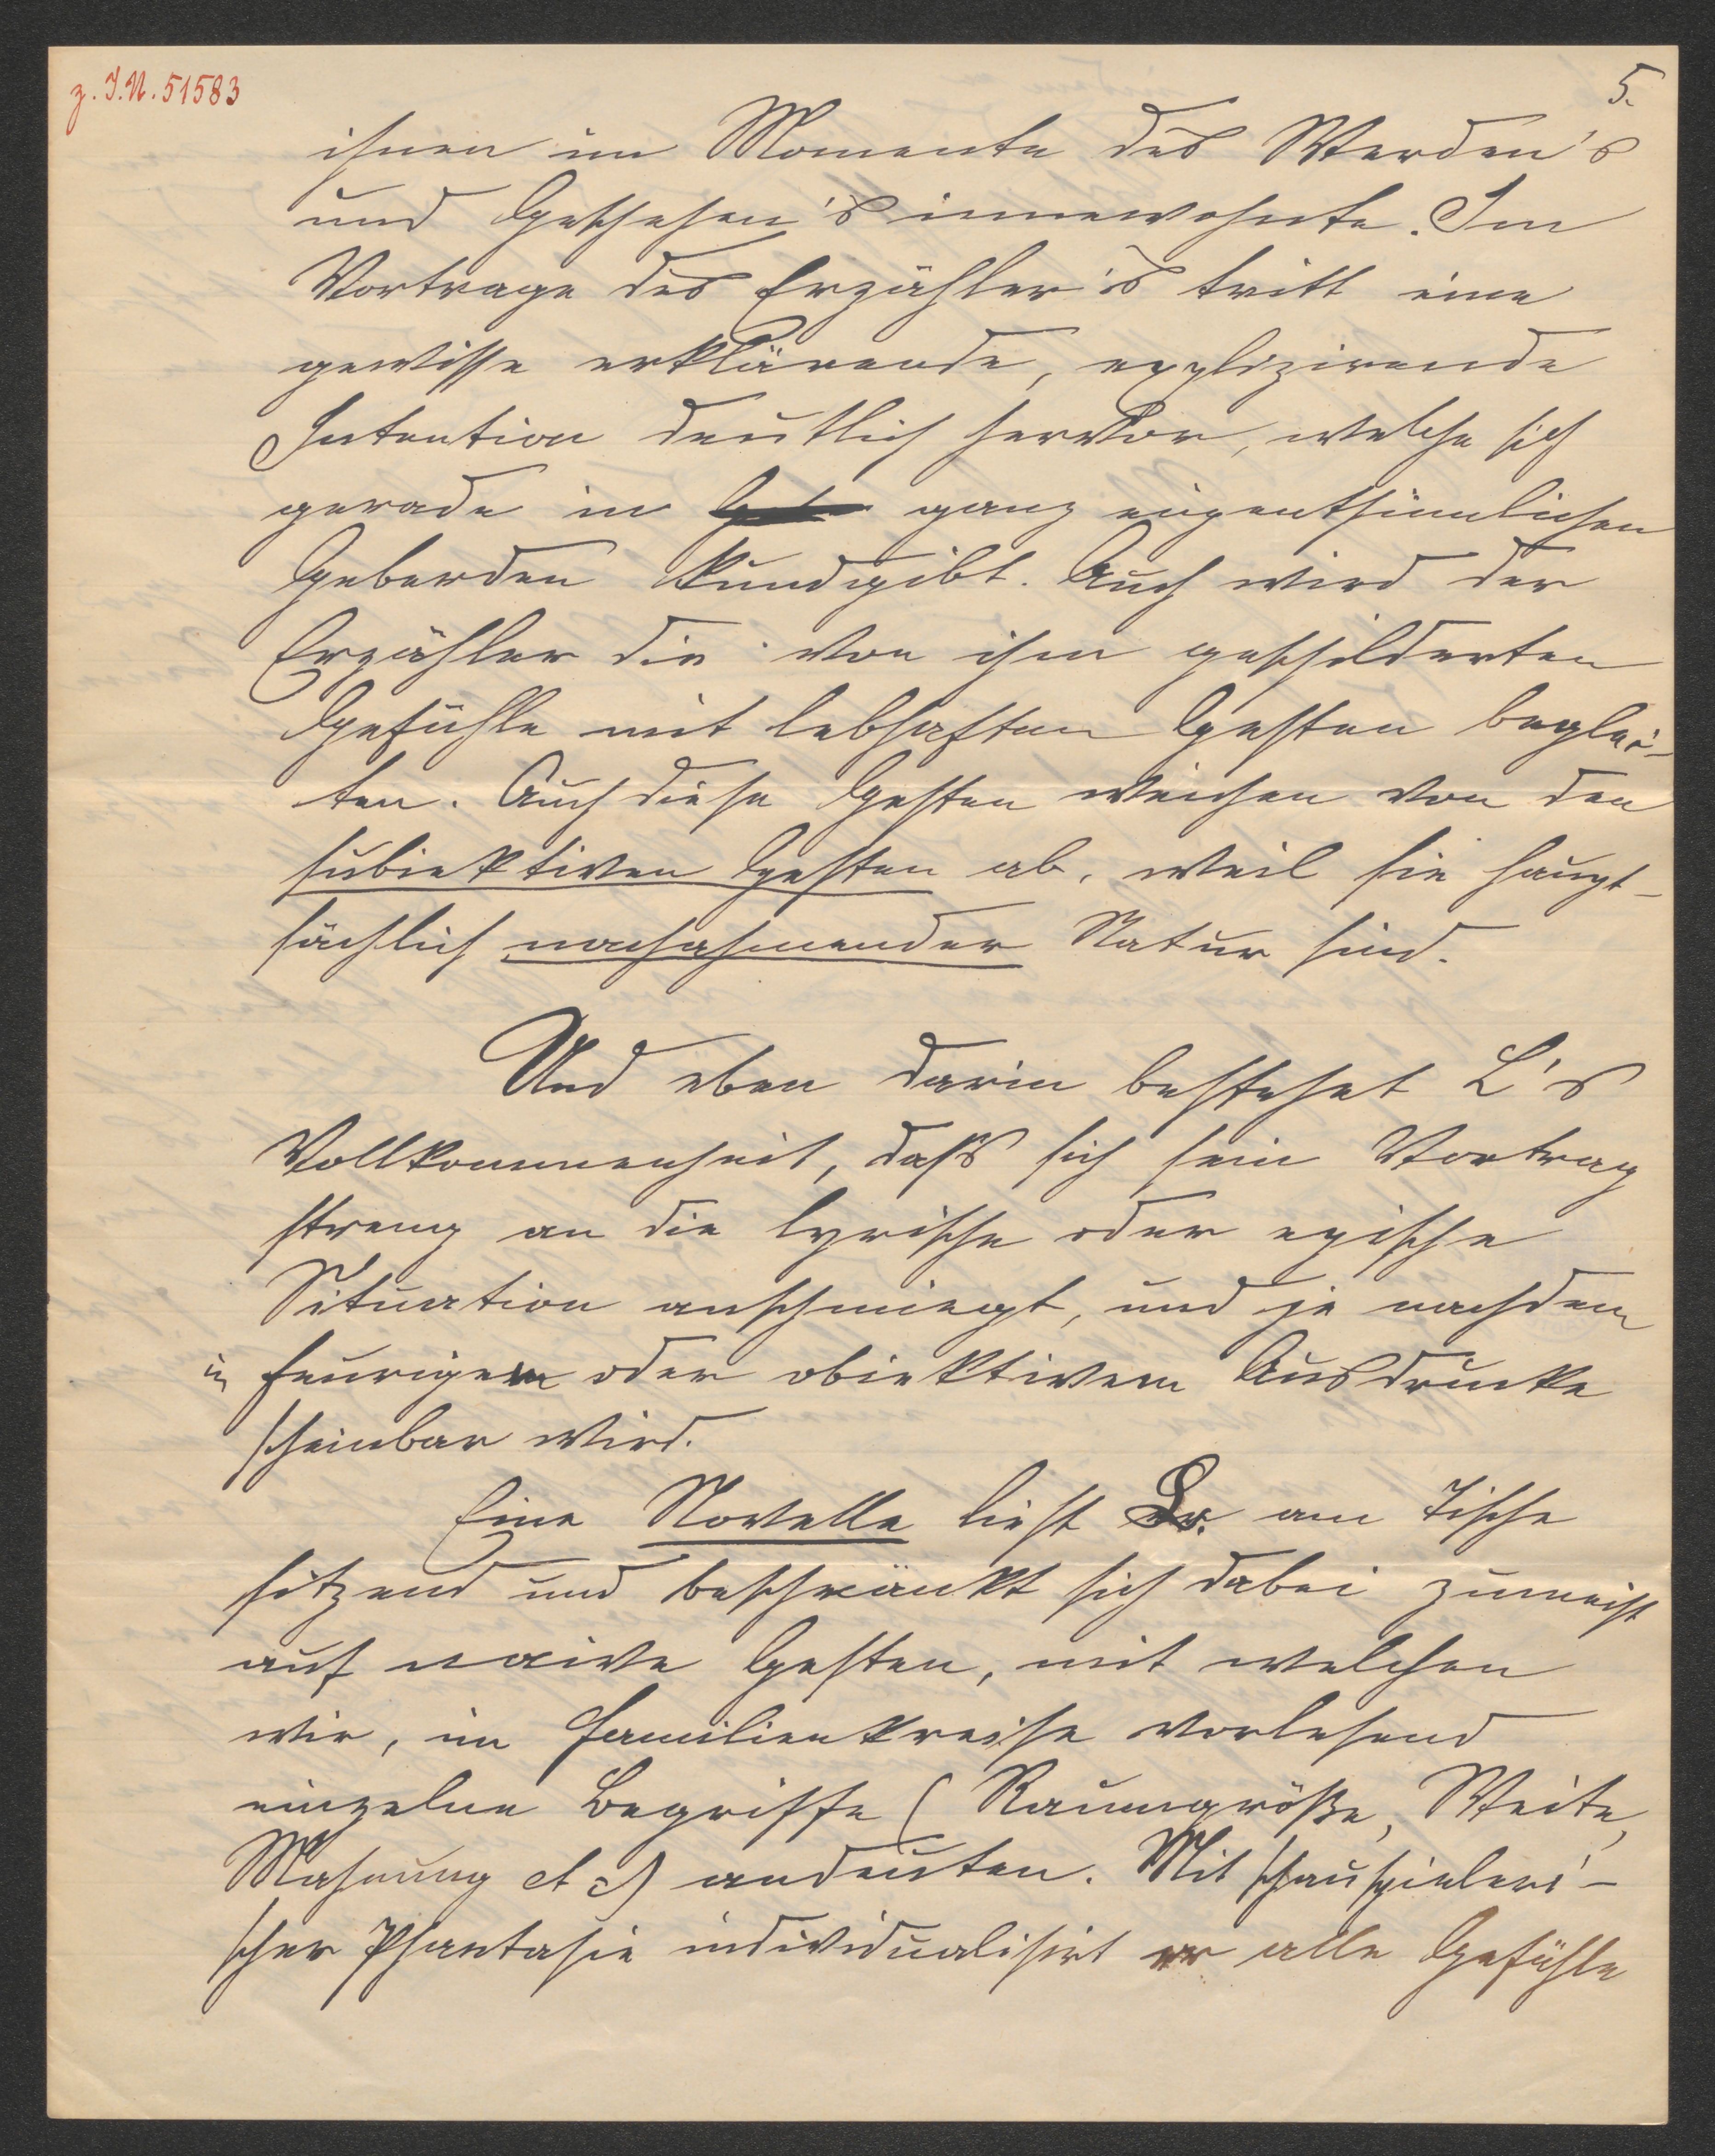 z. I.N. 51583
5.
ihnen im Momente des Werden's
und Geschehen's innewohnte. Im
Vortrage des Erzähler's tritt eine
gewisse erklärende, explizirende
Intention deutlich hervor, welche sich
gerade in ganz eigenthümlichen
Geberden kundgibt. Auch wird der
Erzähler die von ihm geschilderten
Gefühle mit lebhaften Gesten beglei-
ten. Auch diese Gesten weichen von den
subjektiven Gesten ab, weil sie haupt-
sächlich nachahmender Natur sind.
Und eben darin bestehet L's
Vollkommenheit, daß sich sein Vortrag
streng an die lyrische oder epische
Situation anschmiegt, und je nachdem
in feurigem oder objektivem Ausdrucke
scheinbar wird.
Eine Novelle liest Dr. am Tische
sitzend und beschränkt sich dabei zumeist
auf naive Gesten, mit welchen
wir, im Familienkreise vorlesend
einzelne Begriffe (Raumgröße, Weite,
Mahnung etc) andeuten. Mit schauspieleri-
scher Phantasie individualisirt er alle Gefühle